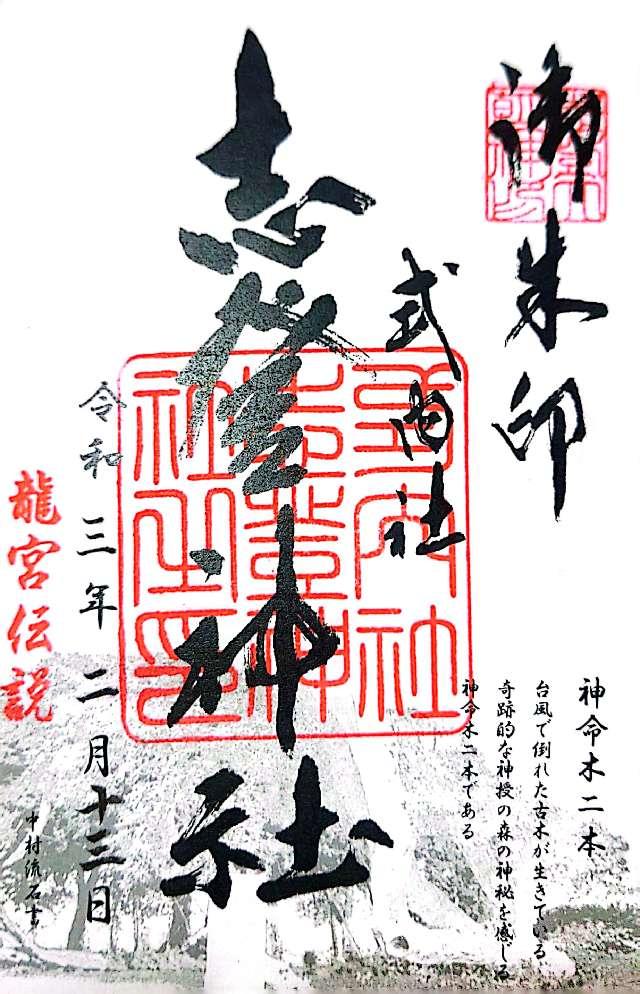 御朱印
式内社
志登神社
神命木二本
台風で倒れた古木が生きている
奇跡的な神授の森の神秘を感じる
神命木二本である
式内社
志登神
社之印
令和三年二月十三日
龍宮伝説
中村流石書